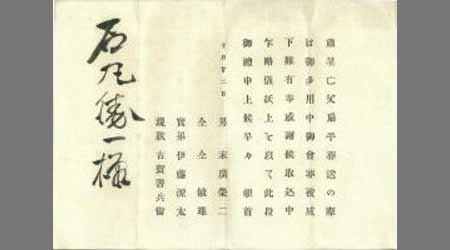 亡父扇平葬送の際
は御多用中御會葬被成
下難有奉感謝候取込中
乍略儀紙上を以て此段
御禮申上候早々 頓首
男 末廣榮二
仝 仝 敏雄
實弟 伊藤源太
親族 古賀善兵衛
石丸勝一様